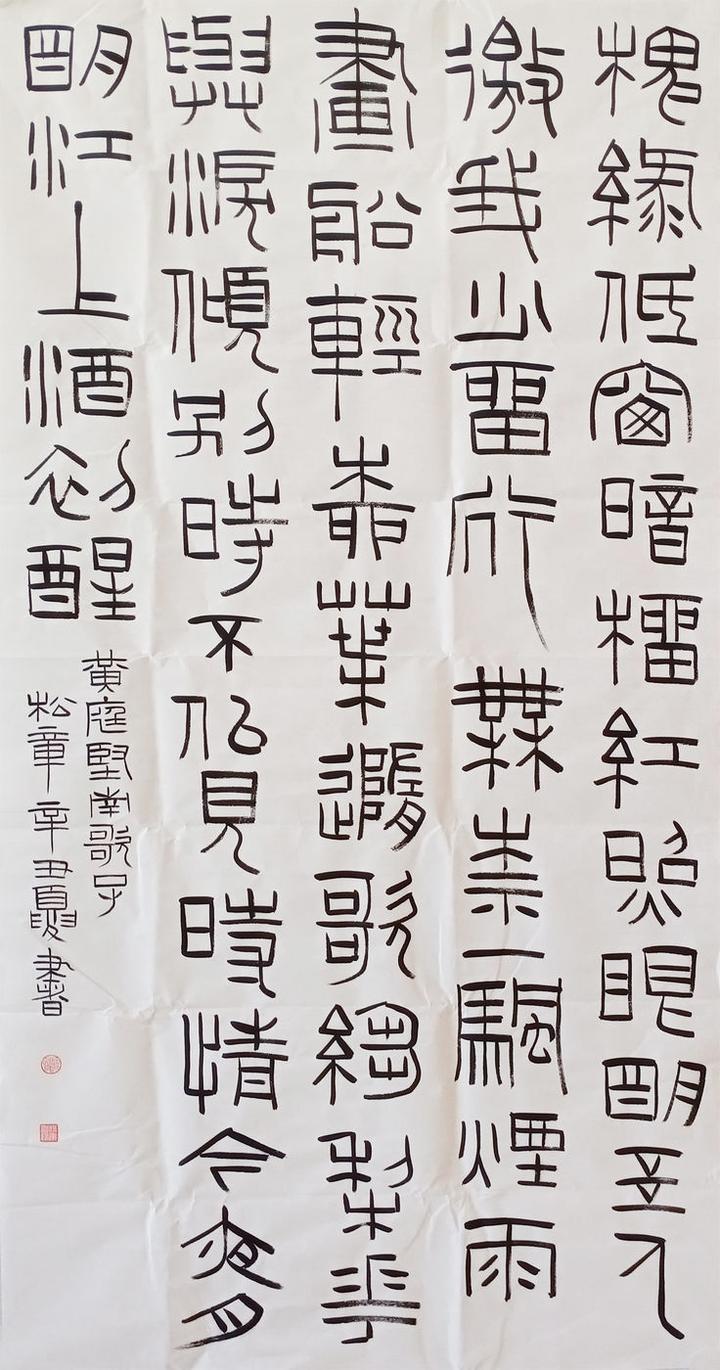 槐綠低窗暗榴紅照眼明玉人
徼我少留行無奈一颿煙雨
畫船輕柳葉隨歌縐梨花
與淚傾別時不似見時情今夜月
明江上酒初醒
黃庭堅南歌子
松章辛丑夏書